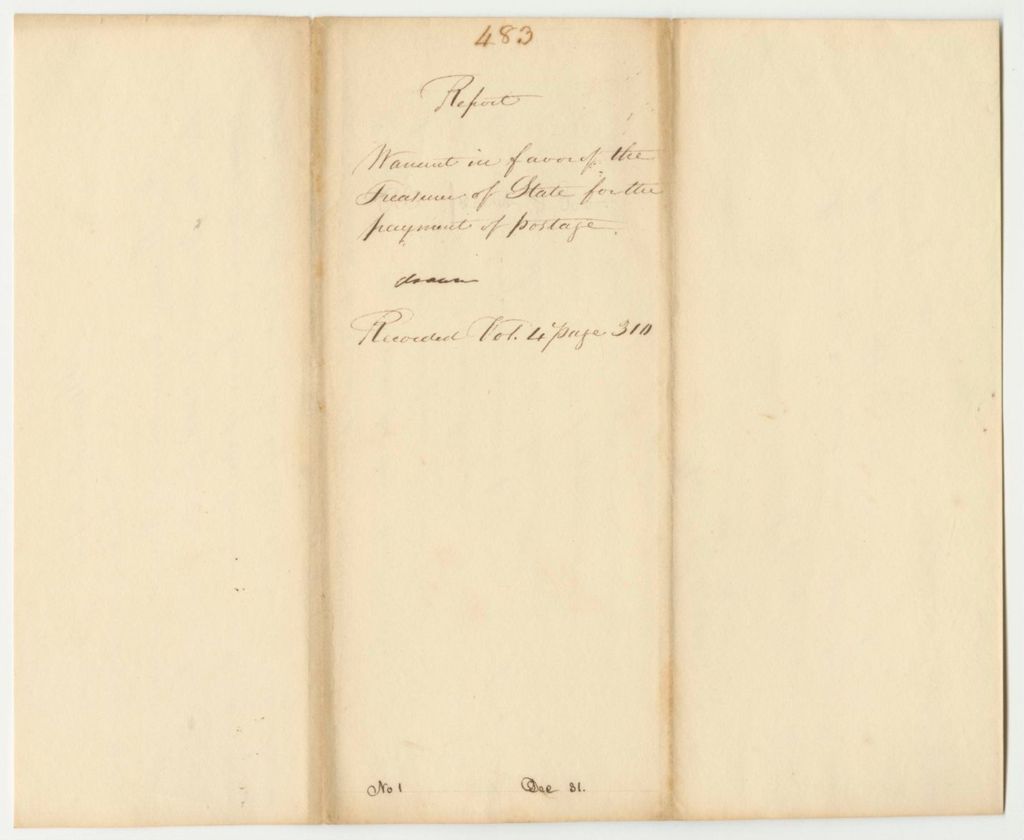 483
Report
Warrant in favor of the
Treasurer of State for the
payment of postage.
drawn
Recorded Vol. 4 page 310
No 1 Dec 31.